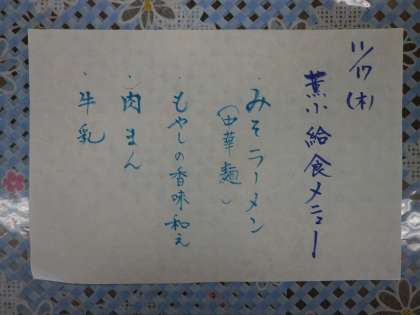 11/17(木)
薫小給食メニュー
・みそラーメン
(中華麺)
・もやしの香味和え
・肉まん
・牛乳